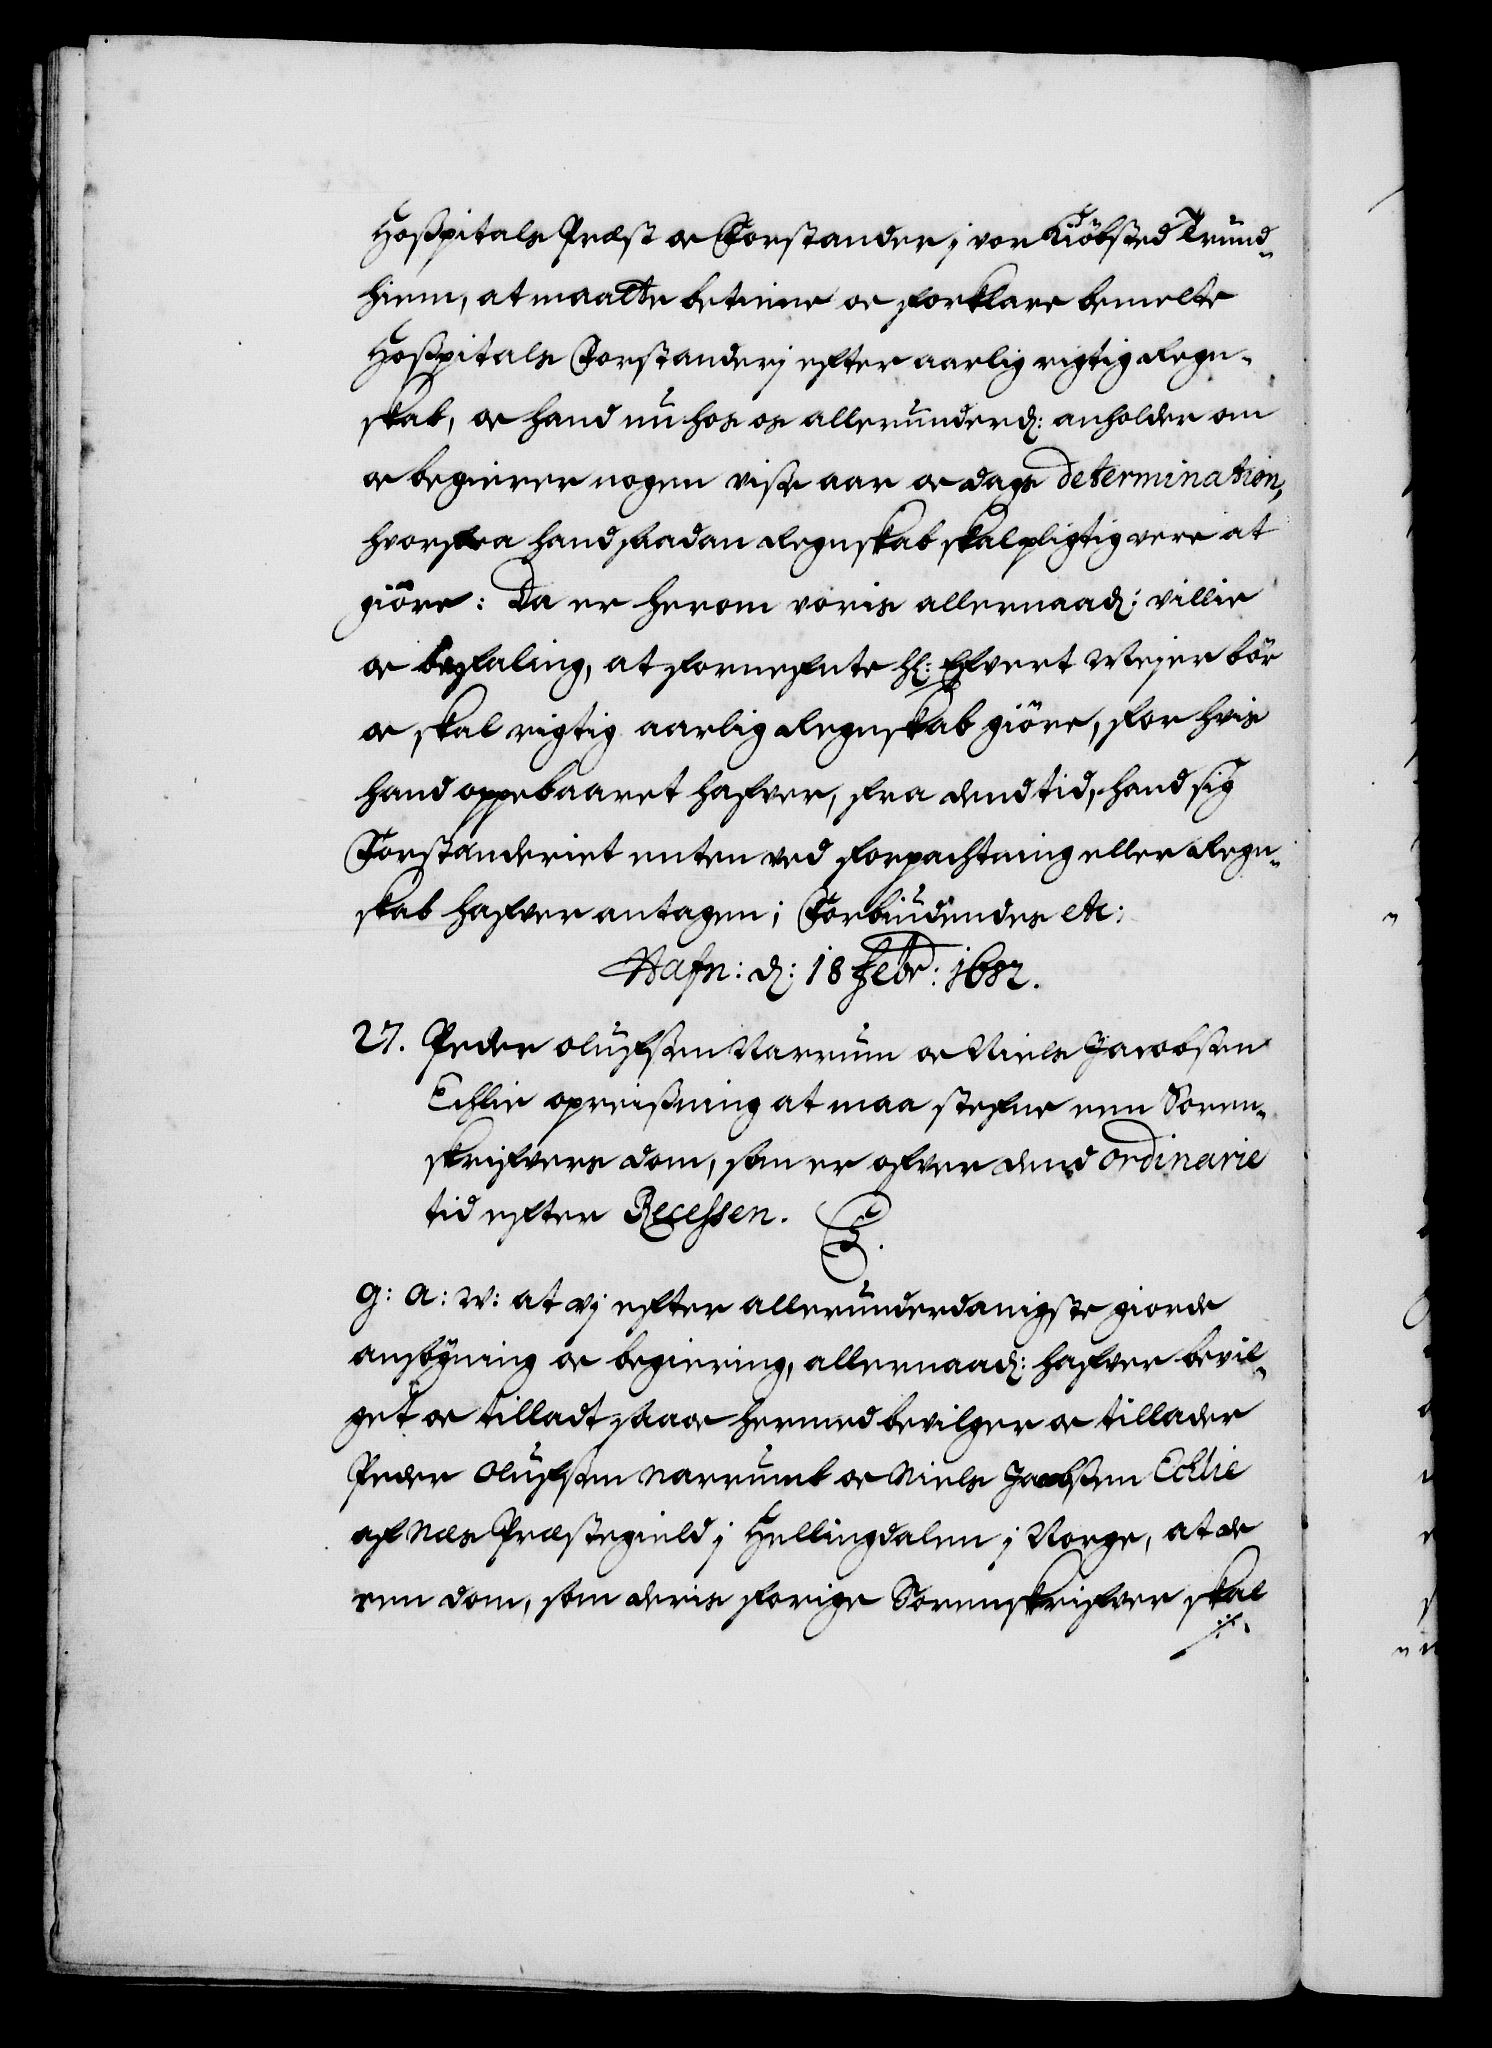 Hoßpitals Præst oc Forstander j vor Kiöbsted Trund-
hiem, at maatte betiene oc forklare bemelte
Hoßpitals Forstanderj efter aarlig rigtig Regn-
skab, oc hand nu hos os allerunderd: anholder om
oc begierer nogen visse aar oc dags determination,
hvorfra hand saadan Regnskab skal pligtig vere at
giöre: Da er herom voris allernaad: villie
oc befaling, at fornefnte Hl: Efvert Mejer bör
oc skal rigtig aarlig Regnskab giöre, for hvis
hand oppebaaret hafver, fra dend tid, hand sig
Forstanderiet enten ved forpachtning eller Regn-
skab hafver antagen; Forbiudendes etc:
Hafn: d: 18 Febr: 1682.
27. Peder Olufsen Narrum oc Niels Jacobsen
Echlie opreißning at maa stefne een Soren-
skrifvers dom, som er ofver dend ordinarie
tid efter Recessen.
G: A: W: at vj efter allerunderdanigste giorde
ansögning oc begiering, allernaad: hafver bevil-
get oc tilladt saa oc hermed bevilger oc tillader
Peder Olufsen Narrumb oc Niels Jacobsen Echlie
af Næs Præstegield j Hellingdalen j Norge, at de
een dom, som deris forige Sorenskrifver skal